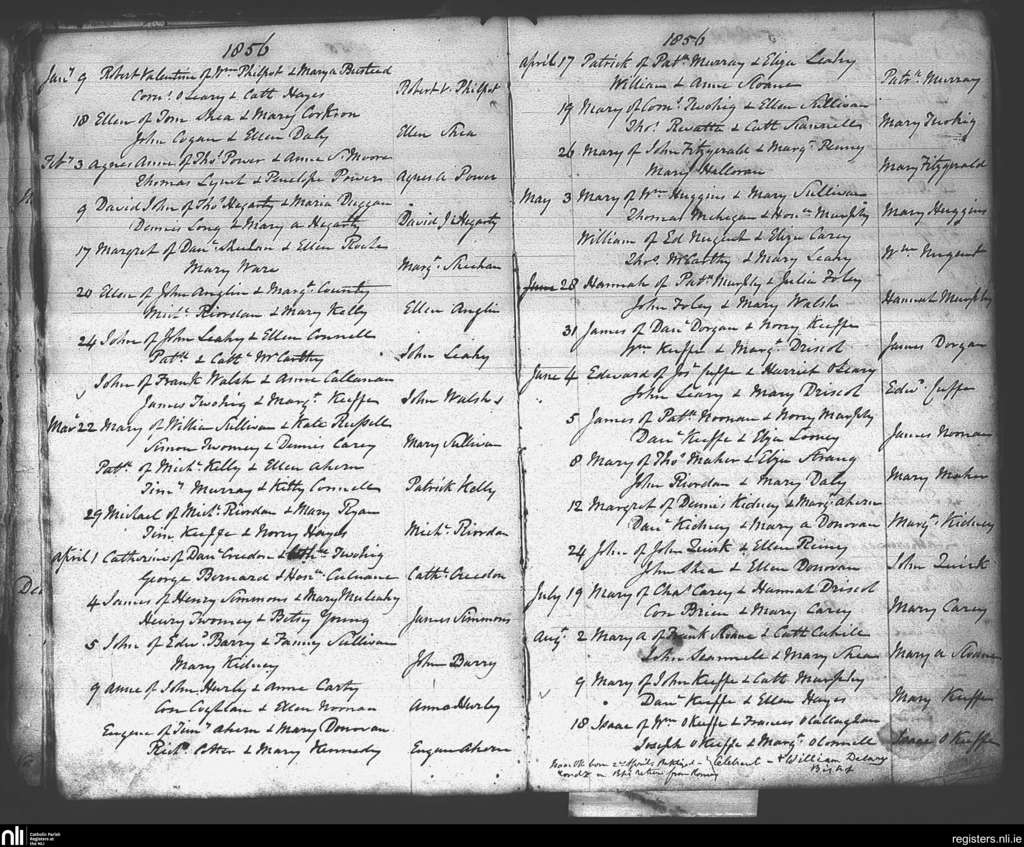 1856
Jany 9 Robert Valentine of Wm Philpot & Mary a Busteed
Corns OLeary & Cath Hayes Robert V. Philpot
18 Ellen of Tom Shea & Mary Corkson
John Cogan & Ellen Daly Ellen Shea
Feby 3 Agnes Anne of Thos Power & Anne S. Moore
Thomas Lynch & Penelope Powers Agnes a Power
9 David John of Thos Hegarty & Maria Duggan
Dennis Long & Mary a Hegarty David J. Hegarty
17 Margret of Danl Sheehan & Ellen Roche
Mary Ware Margt Sheehan
20 Ellen of John Anglin & Margt Country
Michl Riordan & Mary Kelly Ellen Anglin
24 John of John Leahy & Ellen Connell
Patk & Cathe McCarthy John Leahy
John of Frank Walsh & Anne Callanan
James Twohig & Margt Keeffe John Walsh
Mar 22 Mary of William Sullivan & Kate Russell
Simon Twomey & Dennis Carey Mary Sullivan
Patk of Michl Kelly & Ellen Ahern
Timy Murray & Kitty Connell Patrick Kelly
29 Michael of Michl Riordan & Mary Ryan
Tim Keeffe & Norry Hayes Michl Riordan
April 1 Catherine of Danl Creedon & Twohig
George Bernard & Honra Culnane Cathe Creedon
4 James of Henry Simmons & Mary Mulcahy
Henry Twomey & Betsy Young James Simmons
5 John of Edwd Barry & Fanny Sullivan
Mary Kidney John Barry
9 Anne of John Hurly & Anne Carty
Con Coghlan & Ellen Noonan Anna Hurley
Eugene of Timy Ahern & Mary Donovan
Richd Cotter & Mary Kennedy Eugene Ahern
1856
April 17 Patrick of Patk Murray & Eliza Leahy
William & Anne Sloane Patrk Murray
19 Mary of Corns Twohig & Ellen Sullivan
Thos & Cath Scannell Mary Twohig
26 Mary of John Fitzgerald & Margt Reiney
Mary Halloran Mary Fitzgerald
May 3 Mary of Wm Huggins & Mary Sullivan
Thomas Mehegan & Honra Murphy Mary Huggins
William of Ed Nugent & Eliza Carey
Thos McCarthy & Mary Leahy Wm Nugent
June 28 Hannah of Patk Murphy & Julia Foley
John Foley & Mary Walsh Hannah Murphy
31 James of Danl Dorgan & Norry Keeffe
Wm Keeffe & Margt Driscol James Dorgan
June 4 Edward of Jos Cuffe & Harriet OLeary
John Leary & Mary Driscol Edwd Cuffe
5 James of Patk Noonan & Norry Murphy
Danl Keeffe & Eliza Looney James Noonan
8 Mary of Thos Maher & Eliza Strang
John Riordan & Mary Daly Mary Maher
12 Margret of Dennis Kidney & Margt Ahern
Danl Kidney & Mary a Donovan Margt Kidney
24 John of John Quirk & Ellen Reiney
John Shea & Ellen Donovan John Quirk
July 19 Mary of Chas Carey & Hannah Driscol
Con Brien & Mary Carey Mary Carey
Augt 2 Mary a of Frank Sloane & Cath Cahill
John Scannell & Mary Shea Mary a Sloane
9 Mary of John Keeffe & Cath Murphy
Danl Keeffe & Ellen Hayes Mary Keeffe
18 Isaac of Wm OKeeffe & Frances OCallaghan
Joseph OKeeffe & Margt OConnell Isaac OKeeffe
Isaac OK born 2nd April Baptized Celebrant + William Delany
on return from Bishop
nli Catholic Parish Registers at the NLI
registers.nli.ie